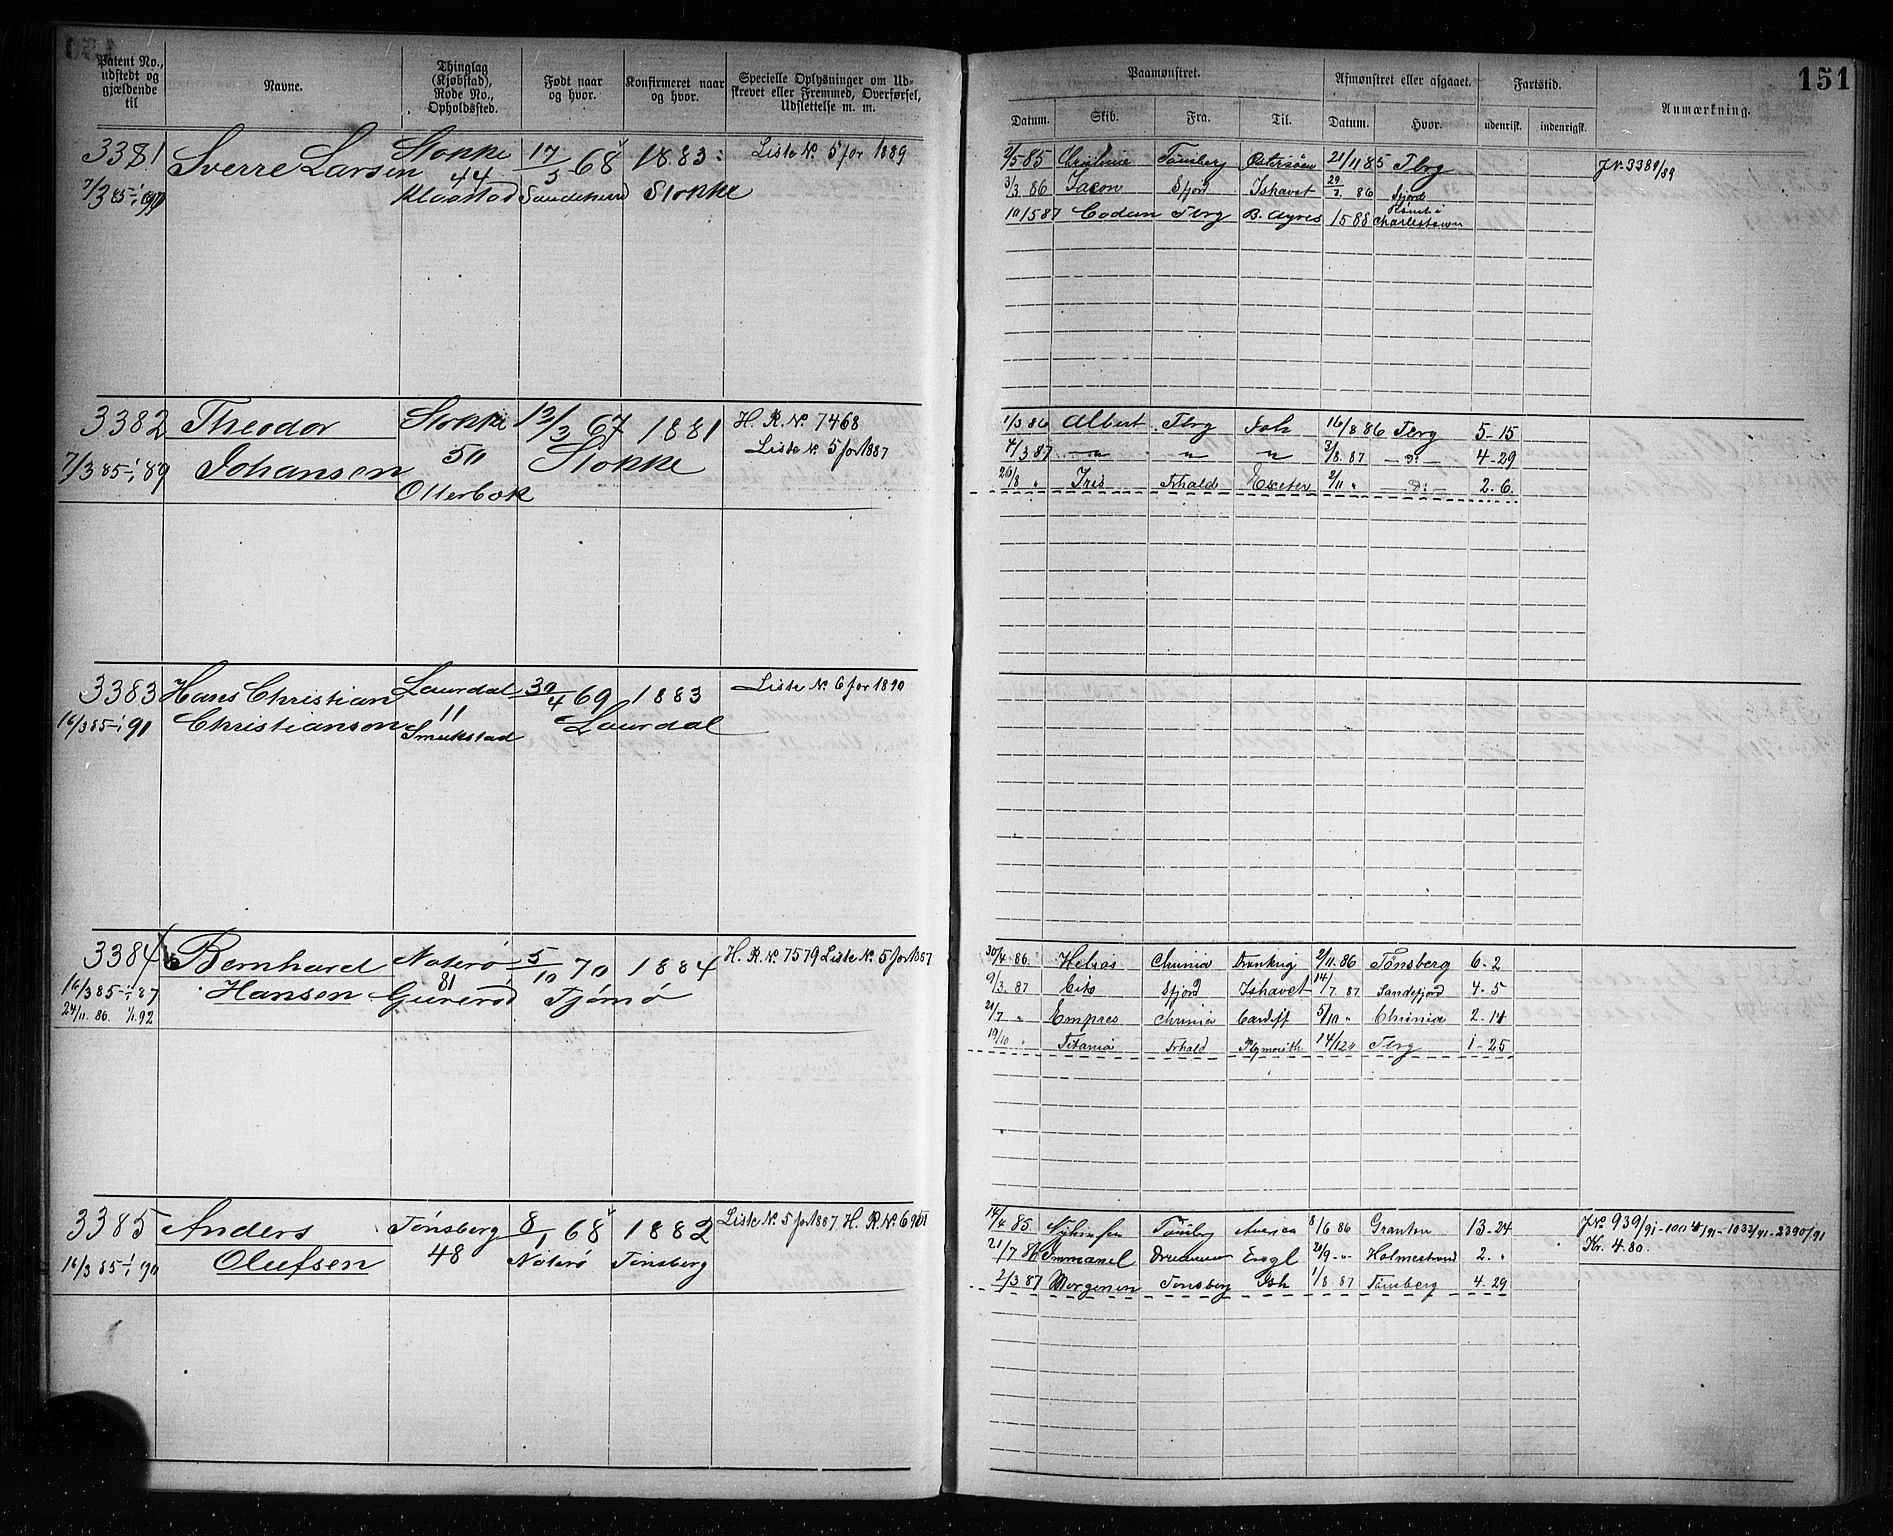 151
Patent No., udstedt og gjældende til
Navne.
Thinglag (Kjøbstad), Rode No., Opholdssted.
Født naar og hvor.
Konfirmeret naar og hvor.
Specielle Oplysninger om Udskrevet eller Fremmed, Overførsel, Udslettelse m. m.
Paamønstret.
Afmønstret eller afgaaet.
Fartstid.
Anmærkning.
Datum. Skib. Fra. Til. Datum. Hvor. udenrigsk. indenrigsk.
3381 Sverre Larsen Stokke 17/3 68 1883 Liste No. 5 for 1889
7/3 85 44 Klaastad Sandeherred Stokke
2/5 85 Tønsberg Østersøen 21/11 85 Tbrg J No 3389/89
3/3 86 Jason Sfjord Ishavet 29/7. 86 Sfjord
10/5 87 Tbrg B. Ayres 1588 Charlestown
3382 Theodor Stokke 13/3 67 1881 H. R. No. 7468
7/3 85-1/1 89 Johansen 50 Stokke Liste No. 5 for 1887
Otterbæk
1/3 86 Albert Tbrg 16/8 86 Tbrg 5-15
4/3 87 -"- " " 3/8. 87 -D:- 4-29
26/8 " Iris Frhald Exeter 2/11 " -D:- 2-6
3383 Hans Christian Laurdal 30/4 69 1883 Liste No. 6 for 1890
16/3 85-1/1 91 Christianson 11 Laurdal
Smukstad
3384 Bernhard Nøterø 5/10 70 1884 H. R. No 7579 Liste No. 5 for 1887
16/3 85-1/1 87 Hansen 81 Tjømø
24/11. 86. 1/1. 92
30/4 86. Helios Chrinia 2/11. 86 Tönsberg 6-2
9/3. 87 Cito Sfjord Ishavet 14/7. 87 Sandefjord 4-5
21/7 " Empres Chrinia Cardiff 5/10 " Chrinia 2-14
19/10 " Titania Frhald Plymouth 14/12 " Tbrg 1-25
3385 Anders Tønsberg 8/1 68 1882 Liste No. 5 for 1887 H. R. No 6901
16/3 85-1/1 90 Olufsen 48 Nøterø Tønsberg
14/4 85 Tönsberg 8/6 86 Granton 13-24 J No. 939/91-1004/91-1033/91-2390/91
21/7 86 Immanuel Drammen Engl 21/9 -"- Holmestrand 2. " Kr. 4.80.
2/3 87 Morgenen Tønsberg Ish 1/8. 87 Tönsberg 4-29